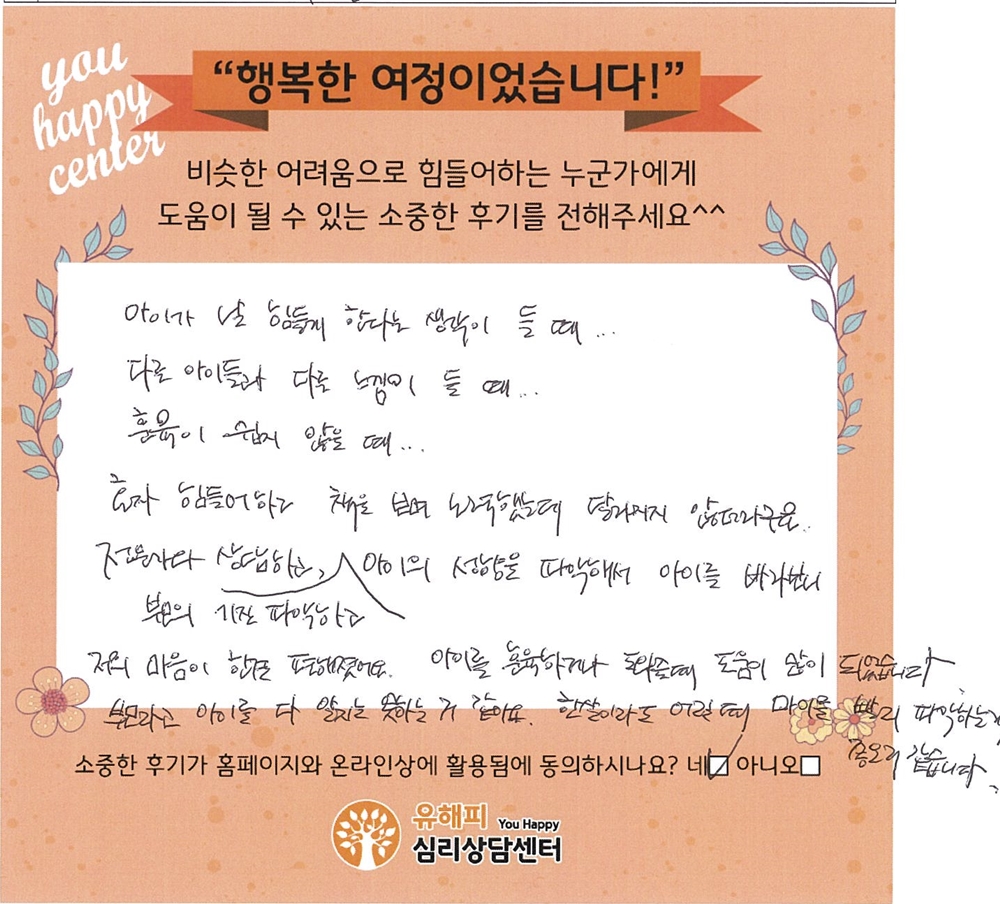 you
happy
center
“행복한 여정이었습니다!”
비슷한 어려움으로 힘들어하는 누군가에게
도움이 될 수 있는 소중한 후기를 전해주세요^^
아이가 날 힘들게 한다는 생각이 들 때...
다른 아이들과 다른 느낌이 들 때...
훈육이 쉽지 않을 때...
혼자 힘들어하고 책을 보며 노력했는데 달라지지 않더라구요.
전문가와 상담하고, 아이의 성향을 파악해서 아이를 바라보니
부모의 기질 파악하고
저의 마음이 한결 편해졌어요. 아이를 훈육하거나 놀아줄때 도움이 많이 되었습니다.
부모라고 아이를 다 알지는 못하는 거 같아요. 한살이라도 어릴 때 마음을 빨리 파악하는게
좋으리 같습니다.
소중한 후기가 홈페이지와 온라인상에 활용됨에 동의하시나요? 네☑ 아니오☐
유해피 You Happy
심리상담센터